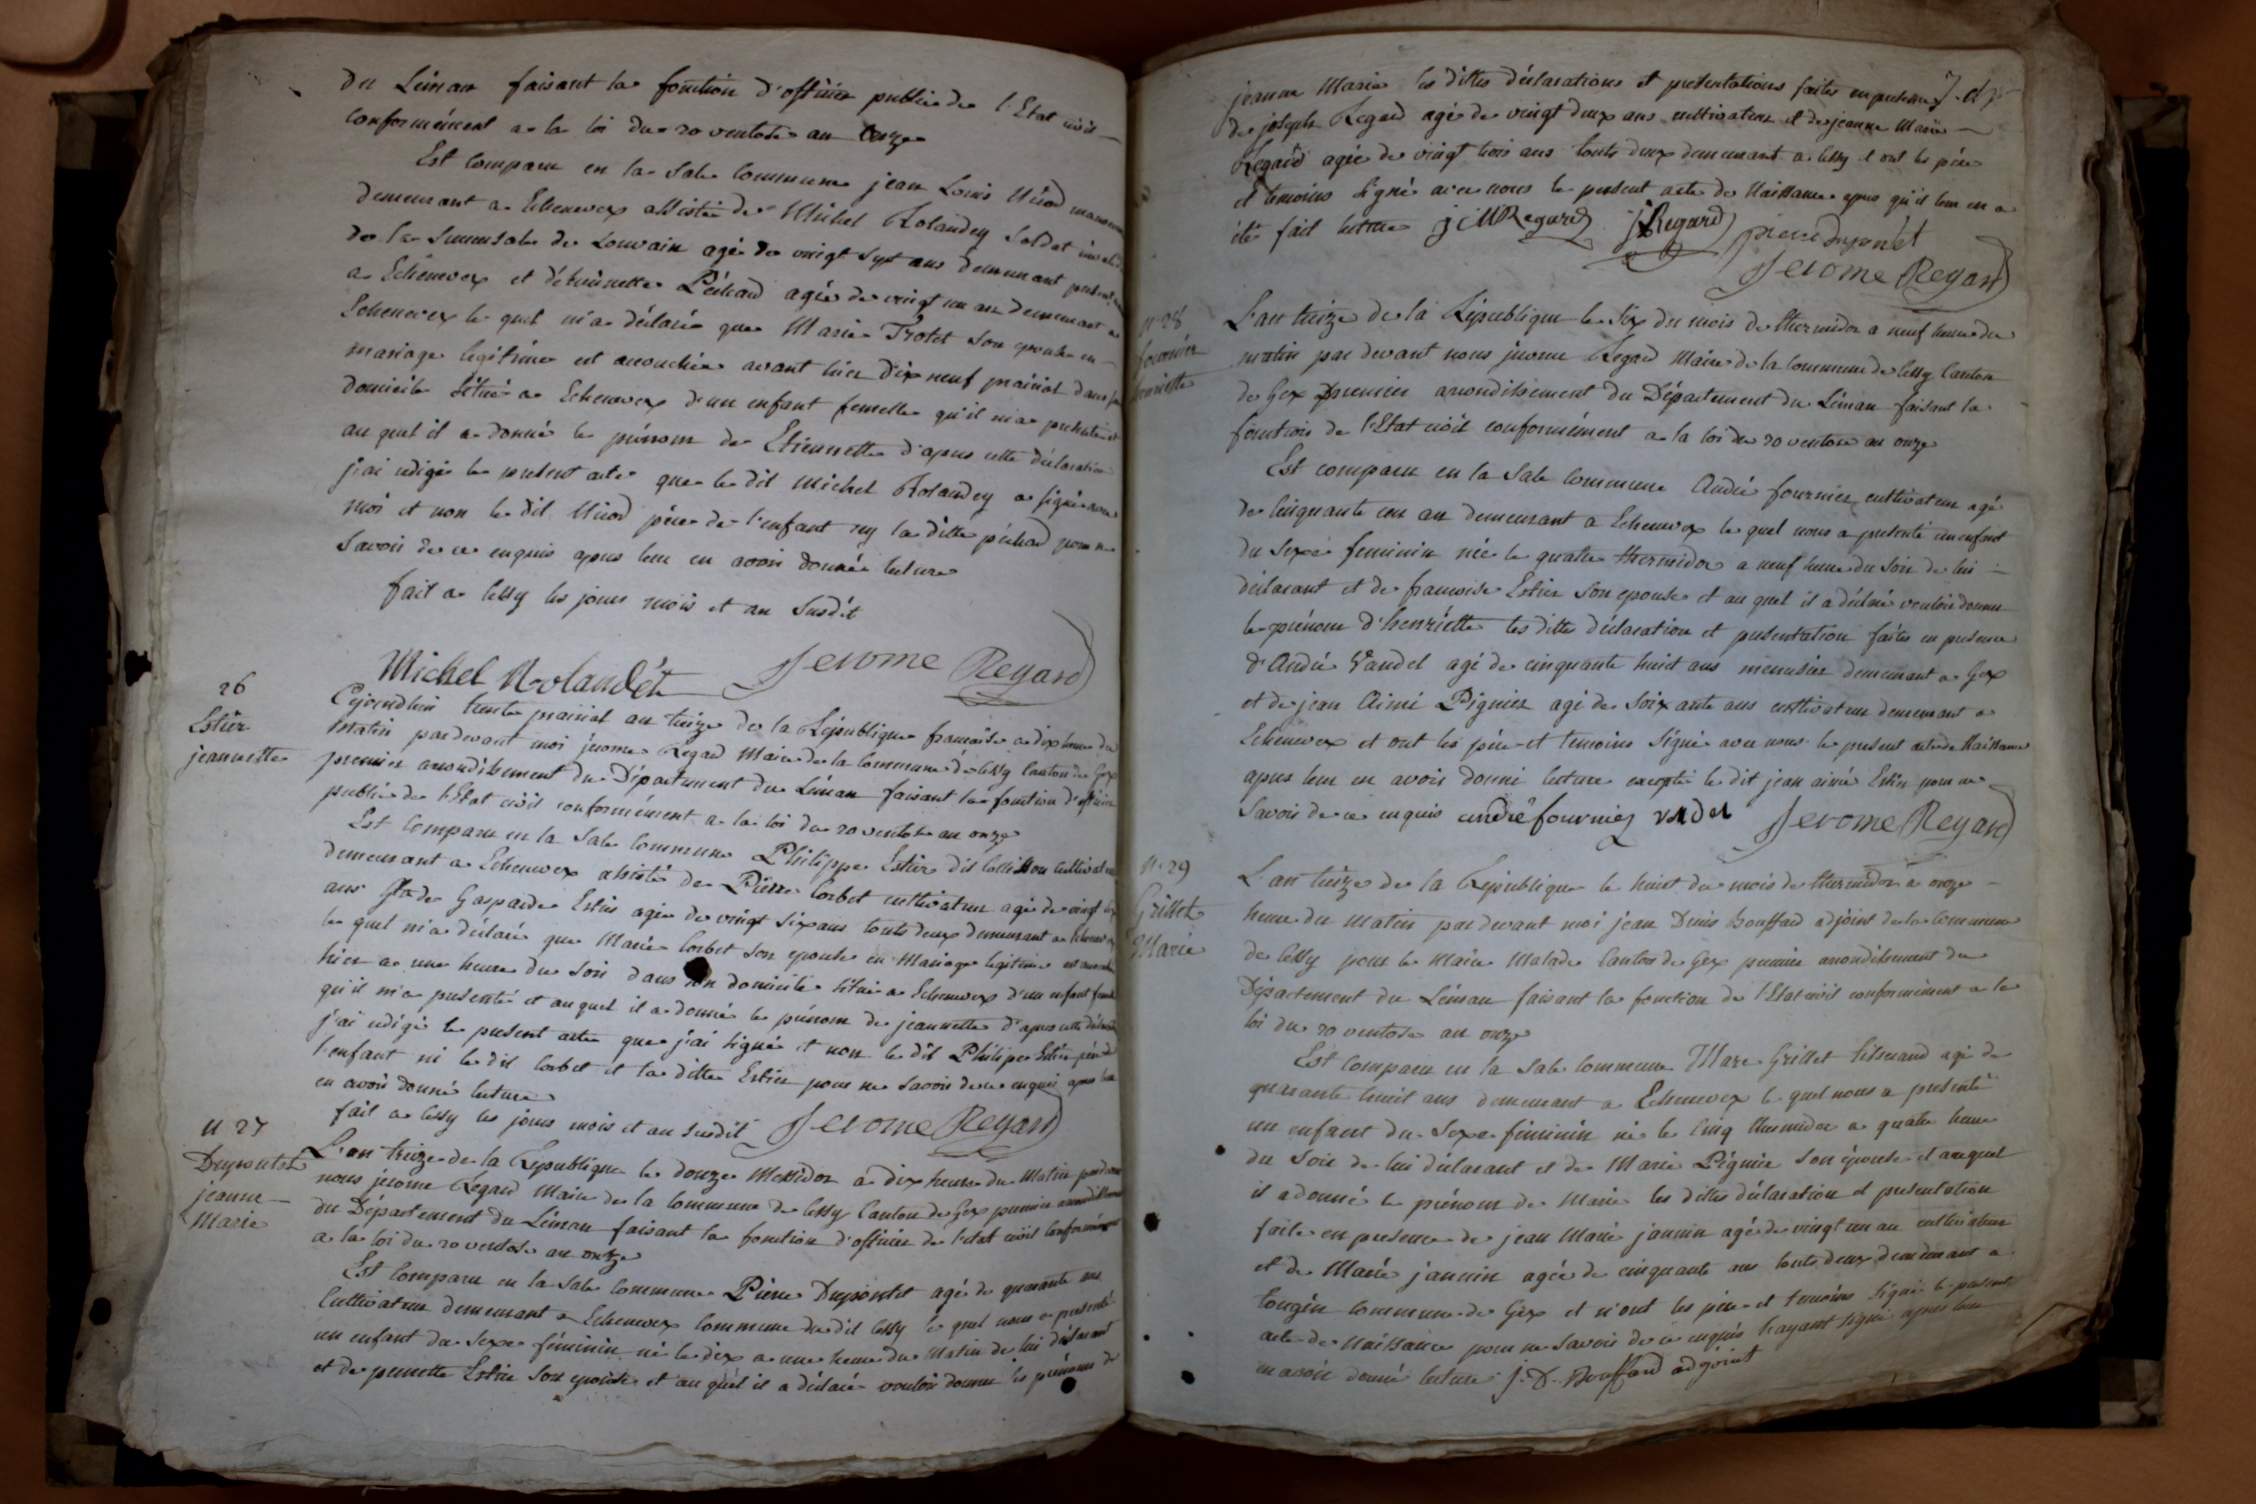 du Léman faisant la fonction d'officier public de l'Etat civil
conformément a la loi du 20 ventose an onze
Est comparu en la Sale Commune jean Louis Nicod
demeurant a Echenevex assisté de Michel Rolandey Soldat
de la Succursale de Louvain agé de vingt Sept ans demeurant
a Echenevex et d'étiennette Péchard agée de vingt un an demeurant a
Echenevex le quel m'a déclaré que Marie Trotet Son epouse en
mariage legitime est accouchée avant hier dix neuf prairial dans
domicile Situé a Echenevex d'un enfant femelle qu'il m'a presenté et
au quel il a donné le prénom de Etiennette d'apres cette déclaration
j'ai redigé le present acte que le dit Michel Rolandey a signé avec
moi et non le dit Nicod père de l'enfant ny la ditte péchard pour ne
Savoir de ce enquis apres leur en avoir donnée lecture
fait a Cessy les jours mois et an Susdit
Michel Rolandét Jerome Regard
26
Estier
jeannette
Cejourdhui trente prairial an treize de la République francaise a dix heure du
Matin pardevant moi jerome Regard Maire de la Commune de Cessy Canton de Gex
premier arrondissement du Département du Léman faisant la fonction d'officier
public de l'Etat civil conformément a la loi du 20 ventose an onze
Est Comparu en la Sale Commune Philippe Estier dit Cultivateur
demeurant a Echenevex assisté de Pierre Corbet cultivateur agé de vingt
ans de Gasparde Estier agée de vingt Six ans touts deux demeurant a Echenevex
le quel m'a déclaré que Marie Corbet Son epouse en Mariage legitime est accouchée
hier a une heure du Soir dans son domicile Situé a Echenevex d'un enfant femelle
qu'il m'a presenté et au quel il a donné le prénom de jeannette d'apres cette déclaration
j'ai redigé le present acte que j'ai Signé et non le dit Philipe Estier père de
l'enfant ni le dit Corbet et la ditte Estier pour ne Savoir de ce enquis apres leur
en avoir donné lecture
fait a Cessy les jours mois et an Susdit Jerome Regard
N 27
Duponlet
jeanne
Marie
L'an treize de la République le douze Messidor a dix heure du Matin pardevant
nous jerome Regard Maire de la Commune de Cessy Canton de Gex premier arrondissement
du Département du Léman faisant la fonction d'officier de l'etat civil conformément
a la loi du 20 ventose an onze
Est Comparu en la Sale Commune Pierre Duponlet agé de quarante ans
Cultivateur demeurant a Echenevex Commune du dit Cessy le quel nous a presenté
un enfant du Sexe féminin né le dix a une heure du Matin de lui déclarant
et de pernette Estier Son epouse et au quel il a déclaré vouloir donner les prénoms de
jeanne Marie les dittes déclarations et presentations faites en presence
de joseph Regard agé de vingt deux ans cultivateur et de jeanne Marie
Regard agée de vingt trois ans touts deux demeurant a Cessy et ont les père
et temoins Signé avec nous le present acte de Naissance apres qu'il leur en a
été fait lecture j M Regard j Regard pierre duponlet
Jerome Regard
N 28
fournier
henriette
L'an treize de la République le Six du mois de thermidor a neuf heure du
matin par devant nous jerome Regard Maire de la Commune de Cessy Canton
de Gex premier arrondissement du Département du Léman faisant la
fonction de l'Etat civil conformément a la loi du 20 ventose an onze
Est comparu en la Sale Commune André fournier cultivateur agé
de Cinquante un an demeurant a Echenevex le quel nous a presenté un enfant
du Sexe feminin née le quatre thermidor a neuf heure du Soir de lui
déclarant et de francoise Estier Son epouse et au quel il a déclaré vouloir donner
le prénom d'henriette les dittes déclaration et presentation faites en presence
d'André Vandel agé de cinquante huit ans menuisier demeurant a Gex
et de jean Aimé Pignier agé de Soixante ans cultivateur demeurant a
Echenevex et ont les père et temoins Signé avec nous le present acte de Naissance
apres leur en avoir donné lecture excepté le dit jean aimé Estier pour ne
Savoir de ce enquis andré fournier vadel Jerome Regard
N 29
Grillet
Marie
L'an treize de la République le huit du mois de thermidor a onze
heure du Matin par devant moi jean Denis Bouffard adjoint de la Commune
de Cessy pour le Maire Malade Canton de Gex premier arrondissement du
Département du Léman faisant la fonction de l'Etat civil conformément a la
loi du 20 ventose an onze
Est Comparu en la Sale Commune Marc Grillet agé de
quarante huit ans demeurant a Echenevex le quel nous a presenté
un enfant du Sexe féminin né le Cinq thermidor a quatre heure
du Soir de lui déclarant et de Marie Pignier Son épouse et auquel
il a donné le prénom de Marie les dittes déclaration et presentation
faite en presence de jean Marie jannin agé de vingt un an cultivateur
et de Marie jannin agée de cinquante ans touts deux demeurant a
Tougin Commune de Gex et n'ont les père et temoins Signé le present
acte de Naissance pour ne Savoir de ce enquis hayant signé apres leur
en avoir donné lecture j. D. Bouffard adjoint